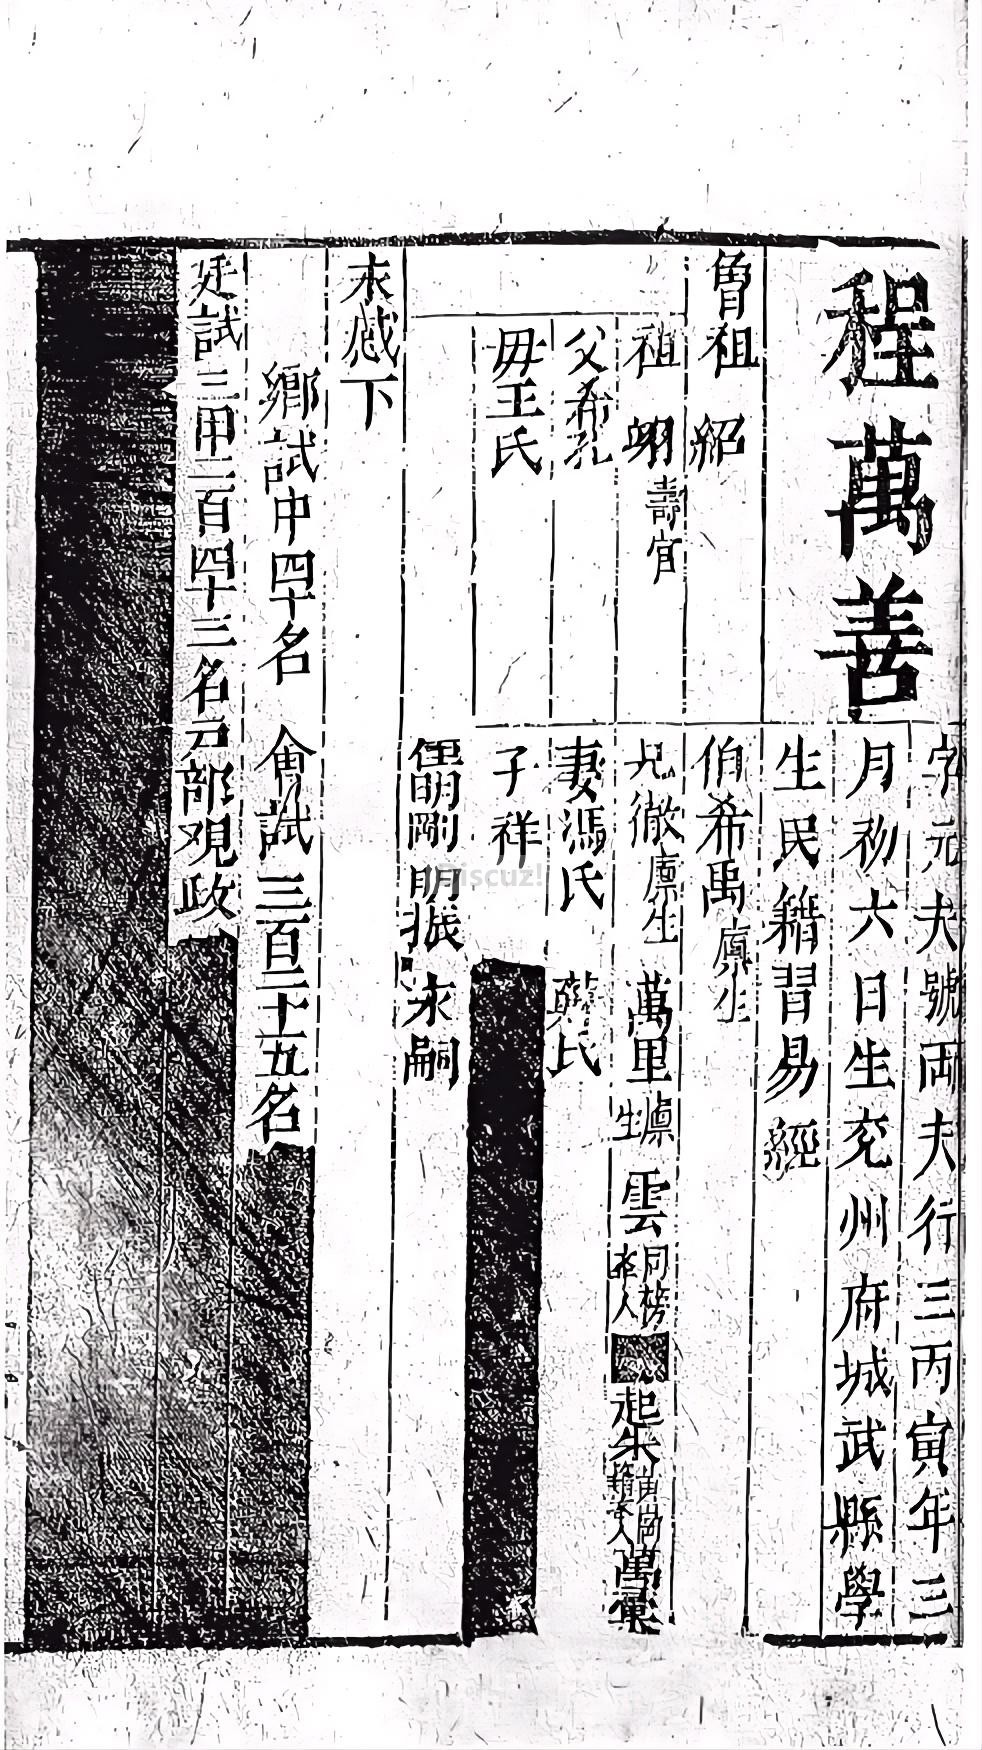 程萬善
字元夫號両夫行三丙寅年三
月初六日生兖州府城武縣學
生民籍習易經
曾祖紹
伯希禹廪生
祖翊壽官
兄徹廪生 萬里廪生 雲同榜舉人 起朱 籍舉人 萬
父希孔
妻馮氏 蘇氏
母王氏
子祥
明剛 明振 永嗣
永感下
鄉試中四十名 會試三百二十五名
廷試三甲二百四十三名 部观政
Discuz!